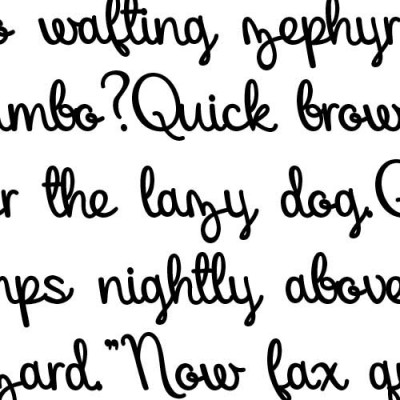 wafting zephyr
mbo?Quick brow
the lazy dog.
mps nightly above
zard."Now fax qu